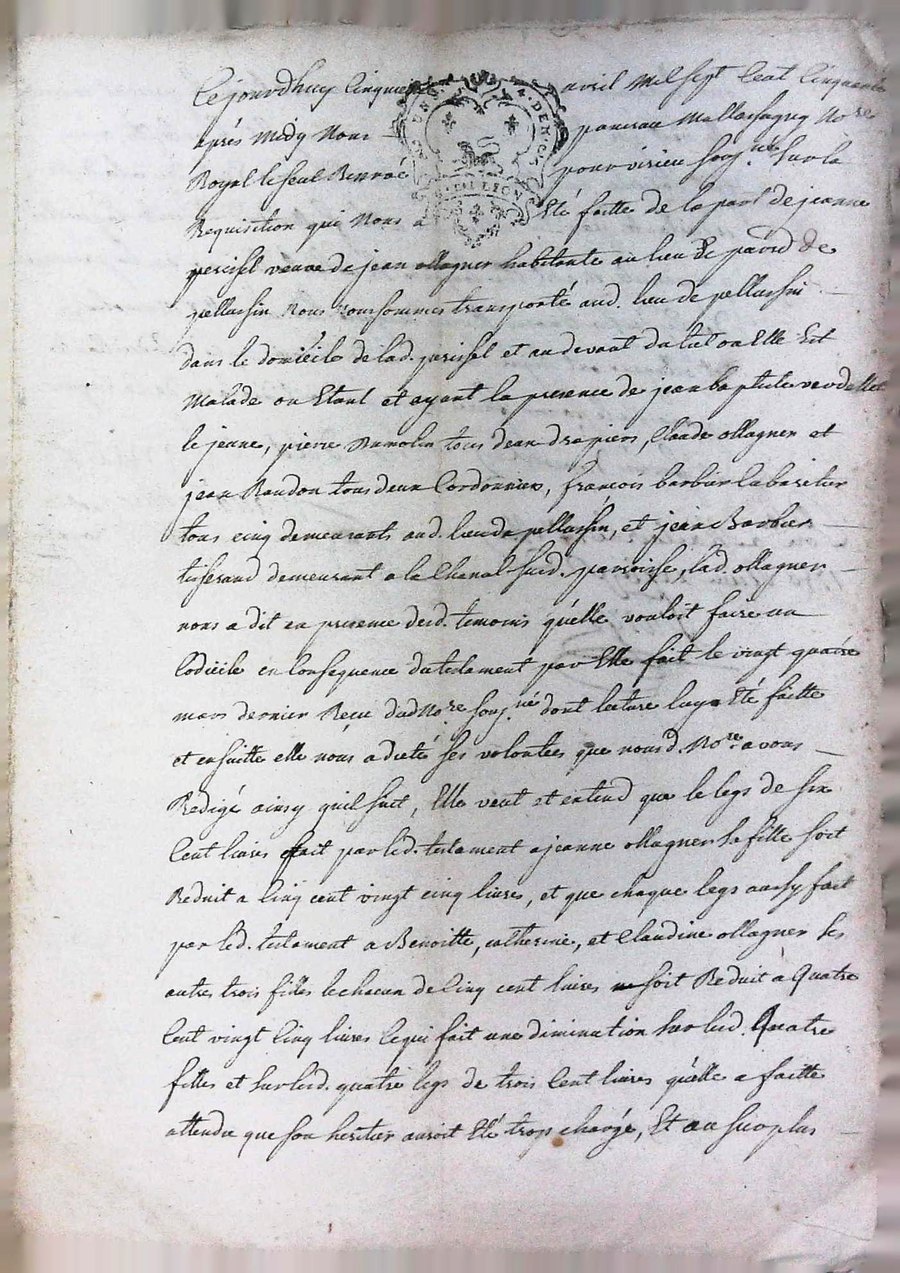 Ce jourdhuy Cinquieme avril Mil sept Cent Cinquante
après Midy Nous Mallassagny No.re
Royal le seul Reservé pour virieu soug.né Sur la
Requisition qui Nous a Eté faitte de la part de jeanne
perissel veuve de jean ollagner habitante au lieu de
pellussin Nous nous sommes transporté aud. lieu de pellussin
dans le domicile de lad. perissel et au devant du lict ou Elle Est
Malade ou Etant et ayant la presence de jean baptiste verdellet
le jeune, pierre tous deux drapiers, Claude ollagner et
jean Baudon tous deux Cordonniers, francois barbier Cabaretier
tous cinq demeurants aud. lieu de pellussin, et jean Barbier
tisserand demeurant a la Chanal susd. parroisse, lad. ollagner
nous a dit en presence desd. temoins qu'elle vouloit faire un
Codicile en Consequence du testament par Elle fait le vingt quatre
mars dernier Reçu dud No.re soug.né dont lecture luy a Eté faitte
et ensuitte elle nous a dicté ses volontées que nous d. No.re avons
Redigé ainsy qu'il suit, Elle veut et entend que le legs de six
Cent livres fait par led. testament a jeanne ollagner sa fille soit
Reduit a Cinq cent vingt cinq livres, et que chaque legs aussy fait
par led. testament a Benoitte, catherine, et Claudine ollagner ses
autres trois filles le chacun de Cinq cent livres soit Reduit à Quatre
Cent vingt Cinq livres Ce qui fait une diminution sur lesd. Quatre
filles et sur lesd. quatre legs de trois Cent livres qu'elle a faitte
attendu que son heritier auroit Eté trop chargé, Et au surplus